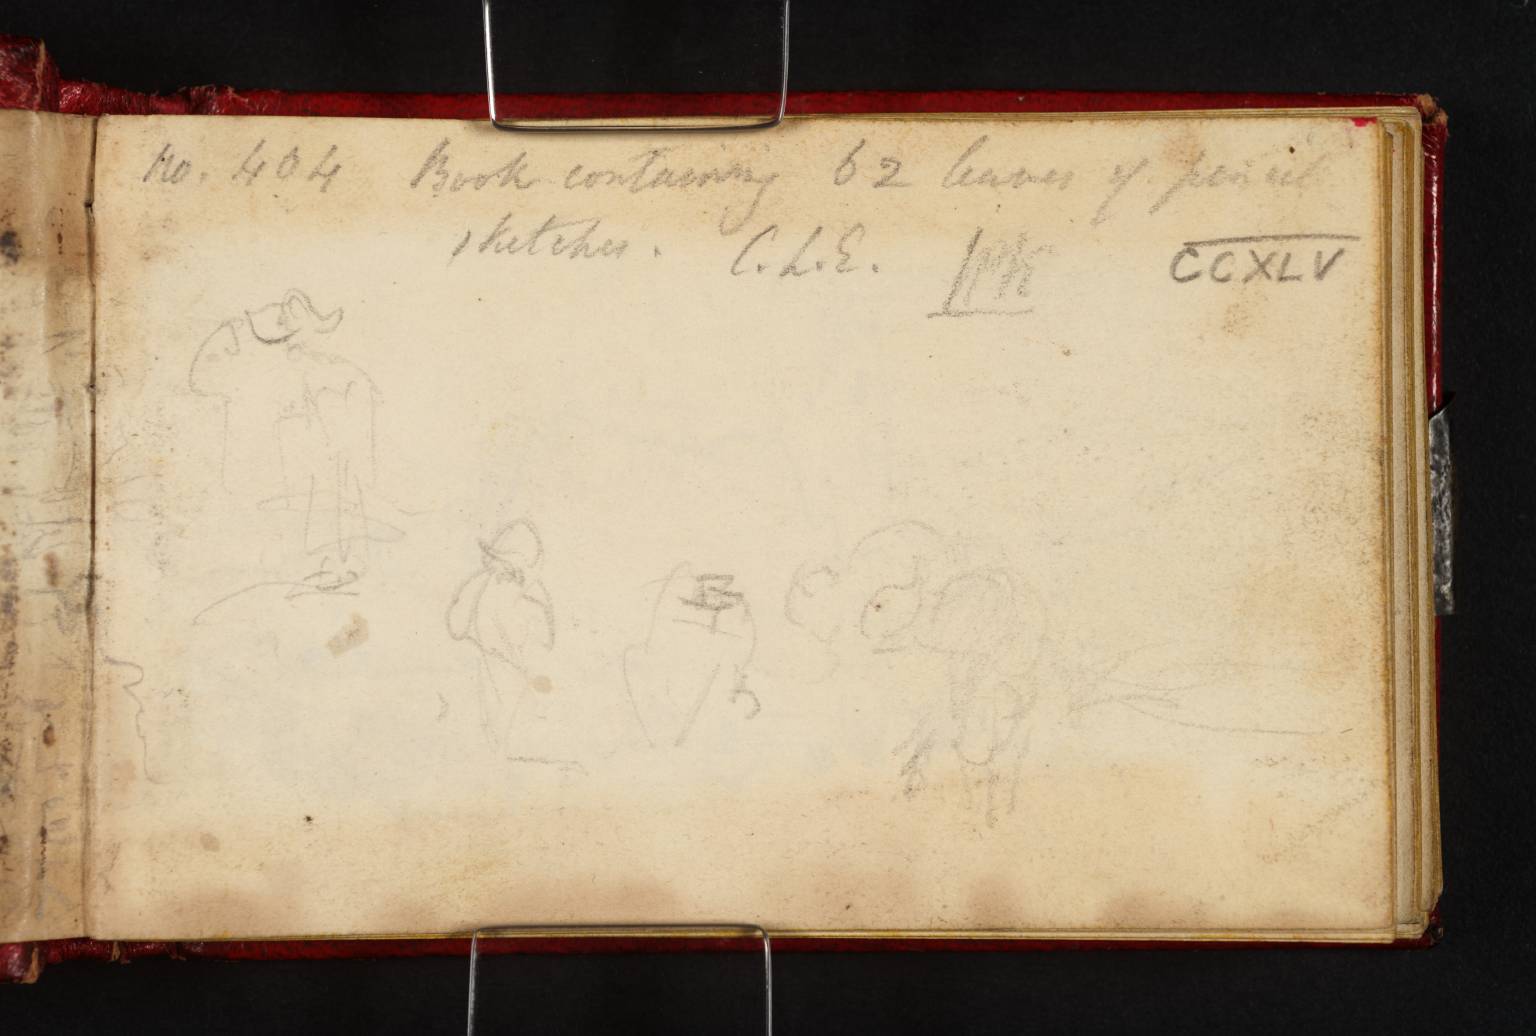 No. 404 Book containing 62 leaves of pencil
sketches. C.L.E.
CCXLV